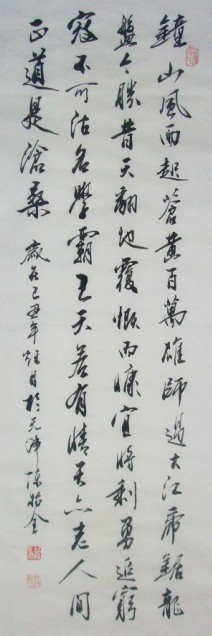 鐘山風雨起蒼黃百萬雄師過大江虎踞龍
盤今勝昔天翻地覆慨而慷宜將剩勇追窮
寇不可沽名學霸王天若有情天亦老人間
正道是滄桑 歲在己丑年 月於天津陳 金